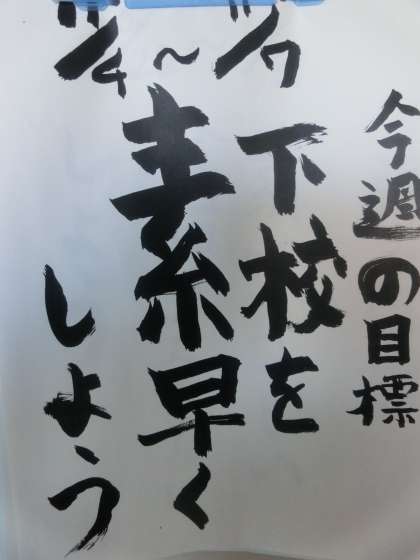 今週の目標
下校を
素早く
しよう